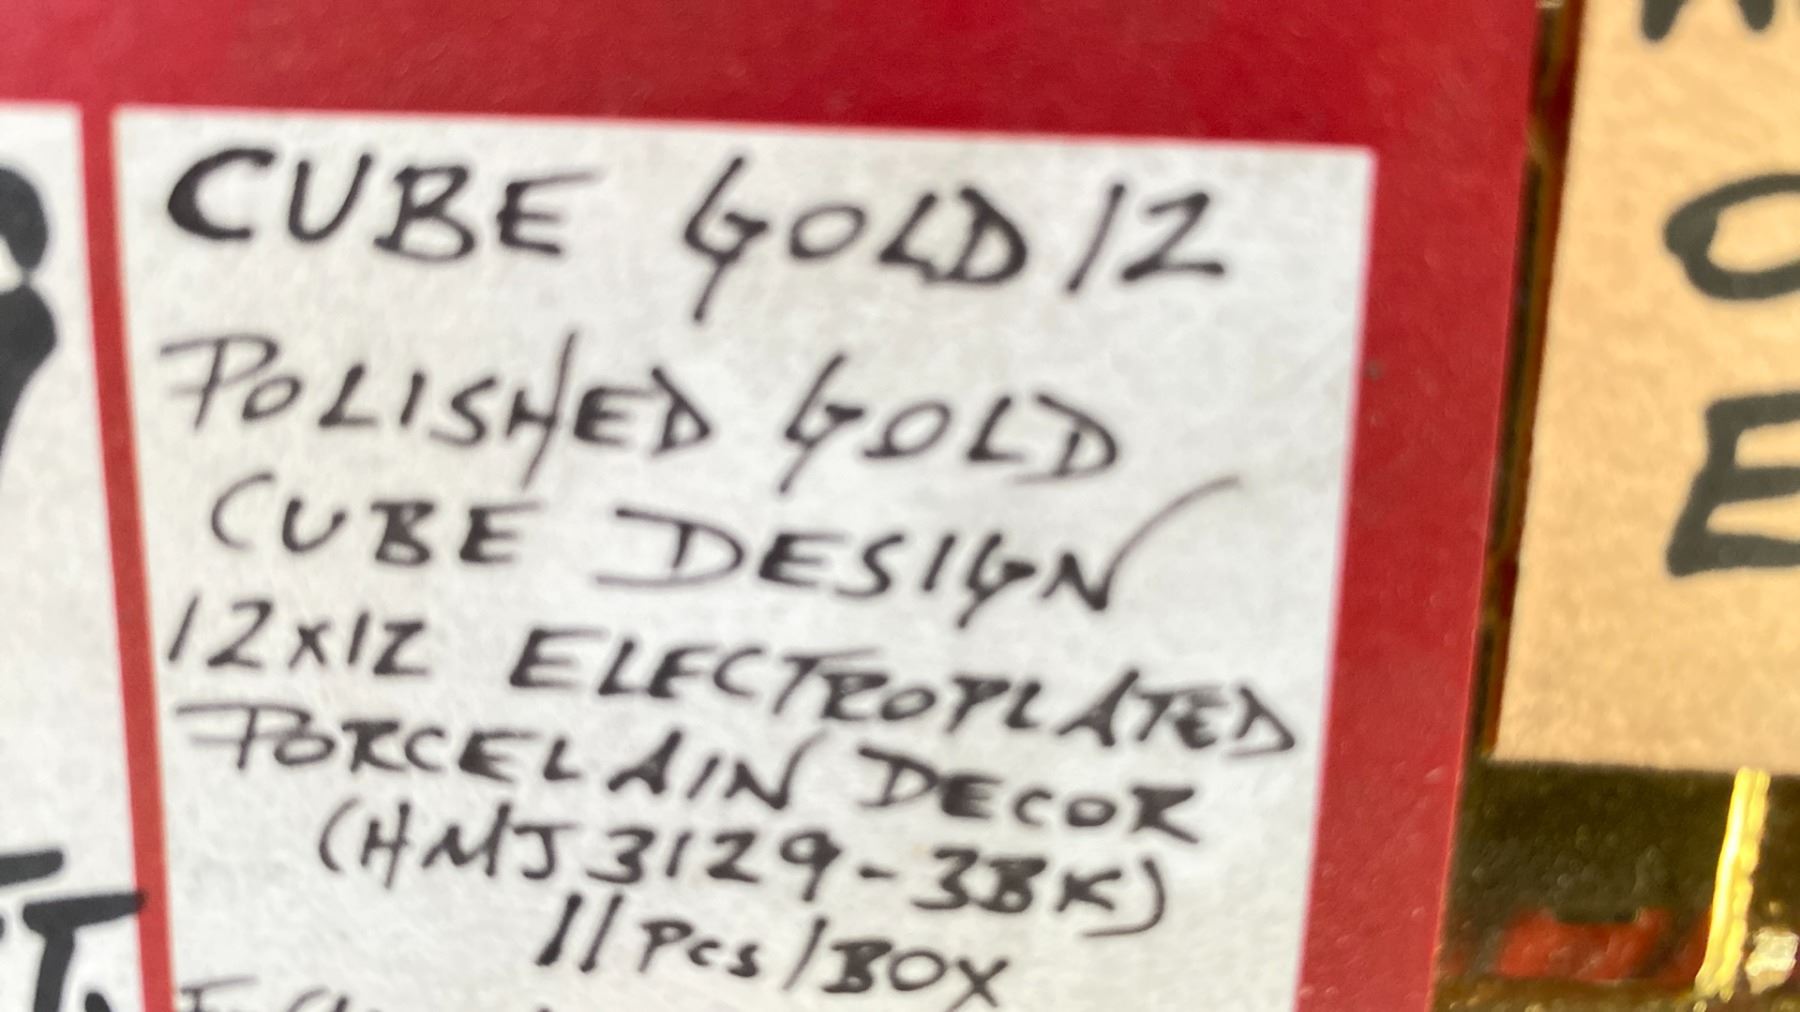 CUBE GOLD 12
POLISHED GOLD
CUBE DESIGN
12x12 ELECTROPLATED
PORCELAIN DECOR
(HMJ3129-3BK)
11 Pcs/BOX
O
E